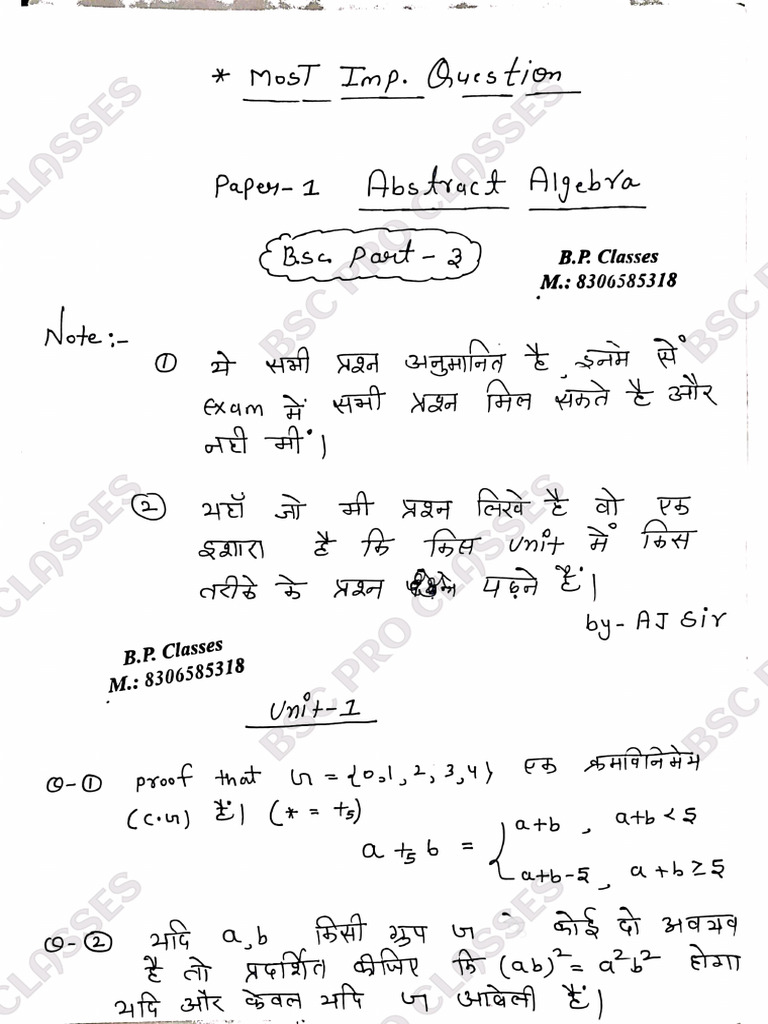 * Most Imp. Question
Paper-1 Abstract Algebra
Bsc. Part - 3
B.P. Classes
M.: 8306585318
Note:-
① ये सभी प्रश्न अनुमानित है, इनमे सें
exam में सभी प्रश्न मिल सकते है और
नही भीं।
② यहाँ जो भी प्रश्न लिखे है वो एक
इशारा है कि किस unit में किस
तरीके के प्रश्न पढ़ने हैं।
by- AJ Sir
B.P. Classes
M.: 8306585318
Unit-1
Q-① proof that G = {0,1,2,3,4} एक क्रमविनिमेय
(C.G) हैं। (* = +₅)
a +₅ b = { a+b , a+b < 5
a+b-5 , a+b ≥ 5
Q-② यदि a,b किसी ग्रुप G कोई दो अवयव
है तो प्रदर्शित कीजिए कि (ab)² = a²b² होगा
यदि और केवल यदि G आबेली हैं।
BSC PRO CLASSES